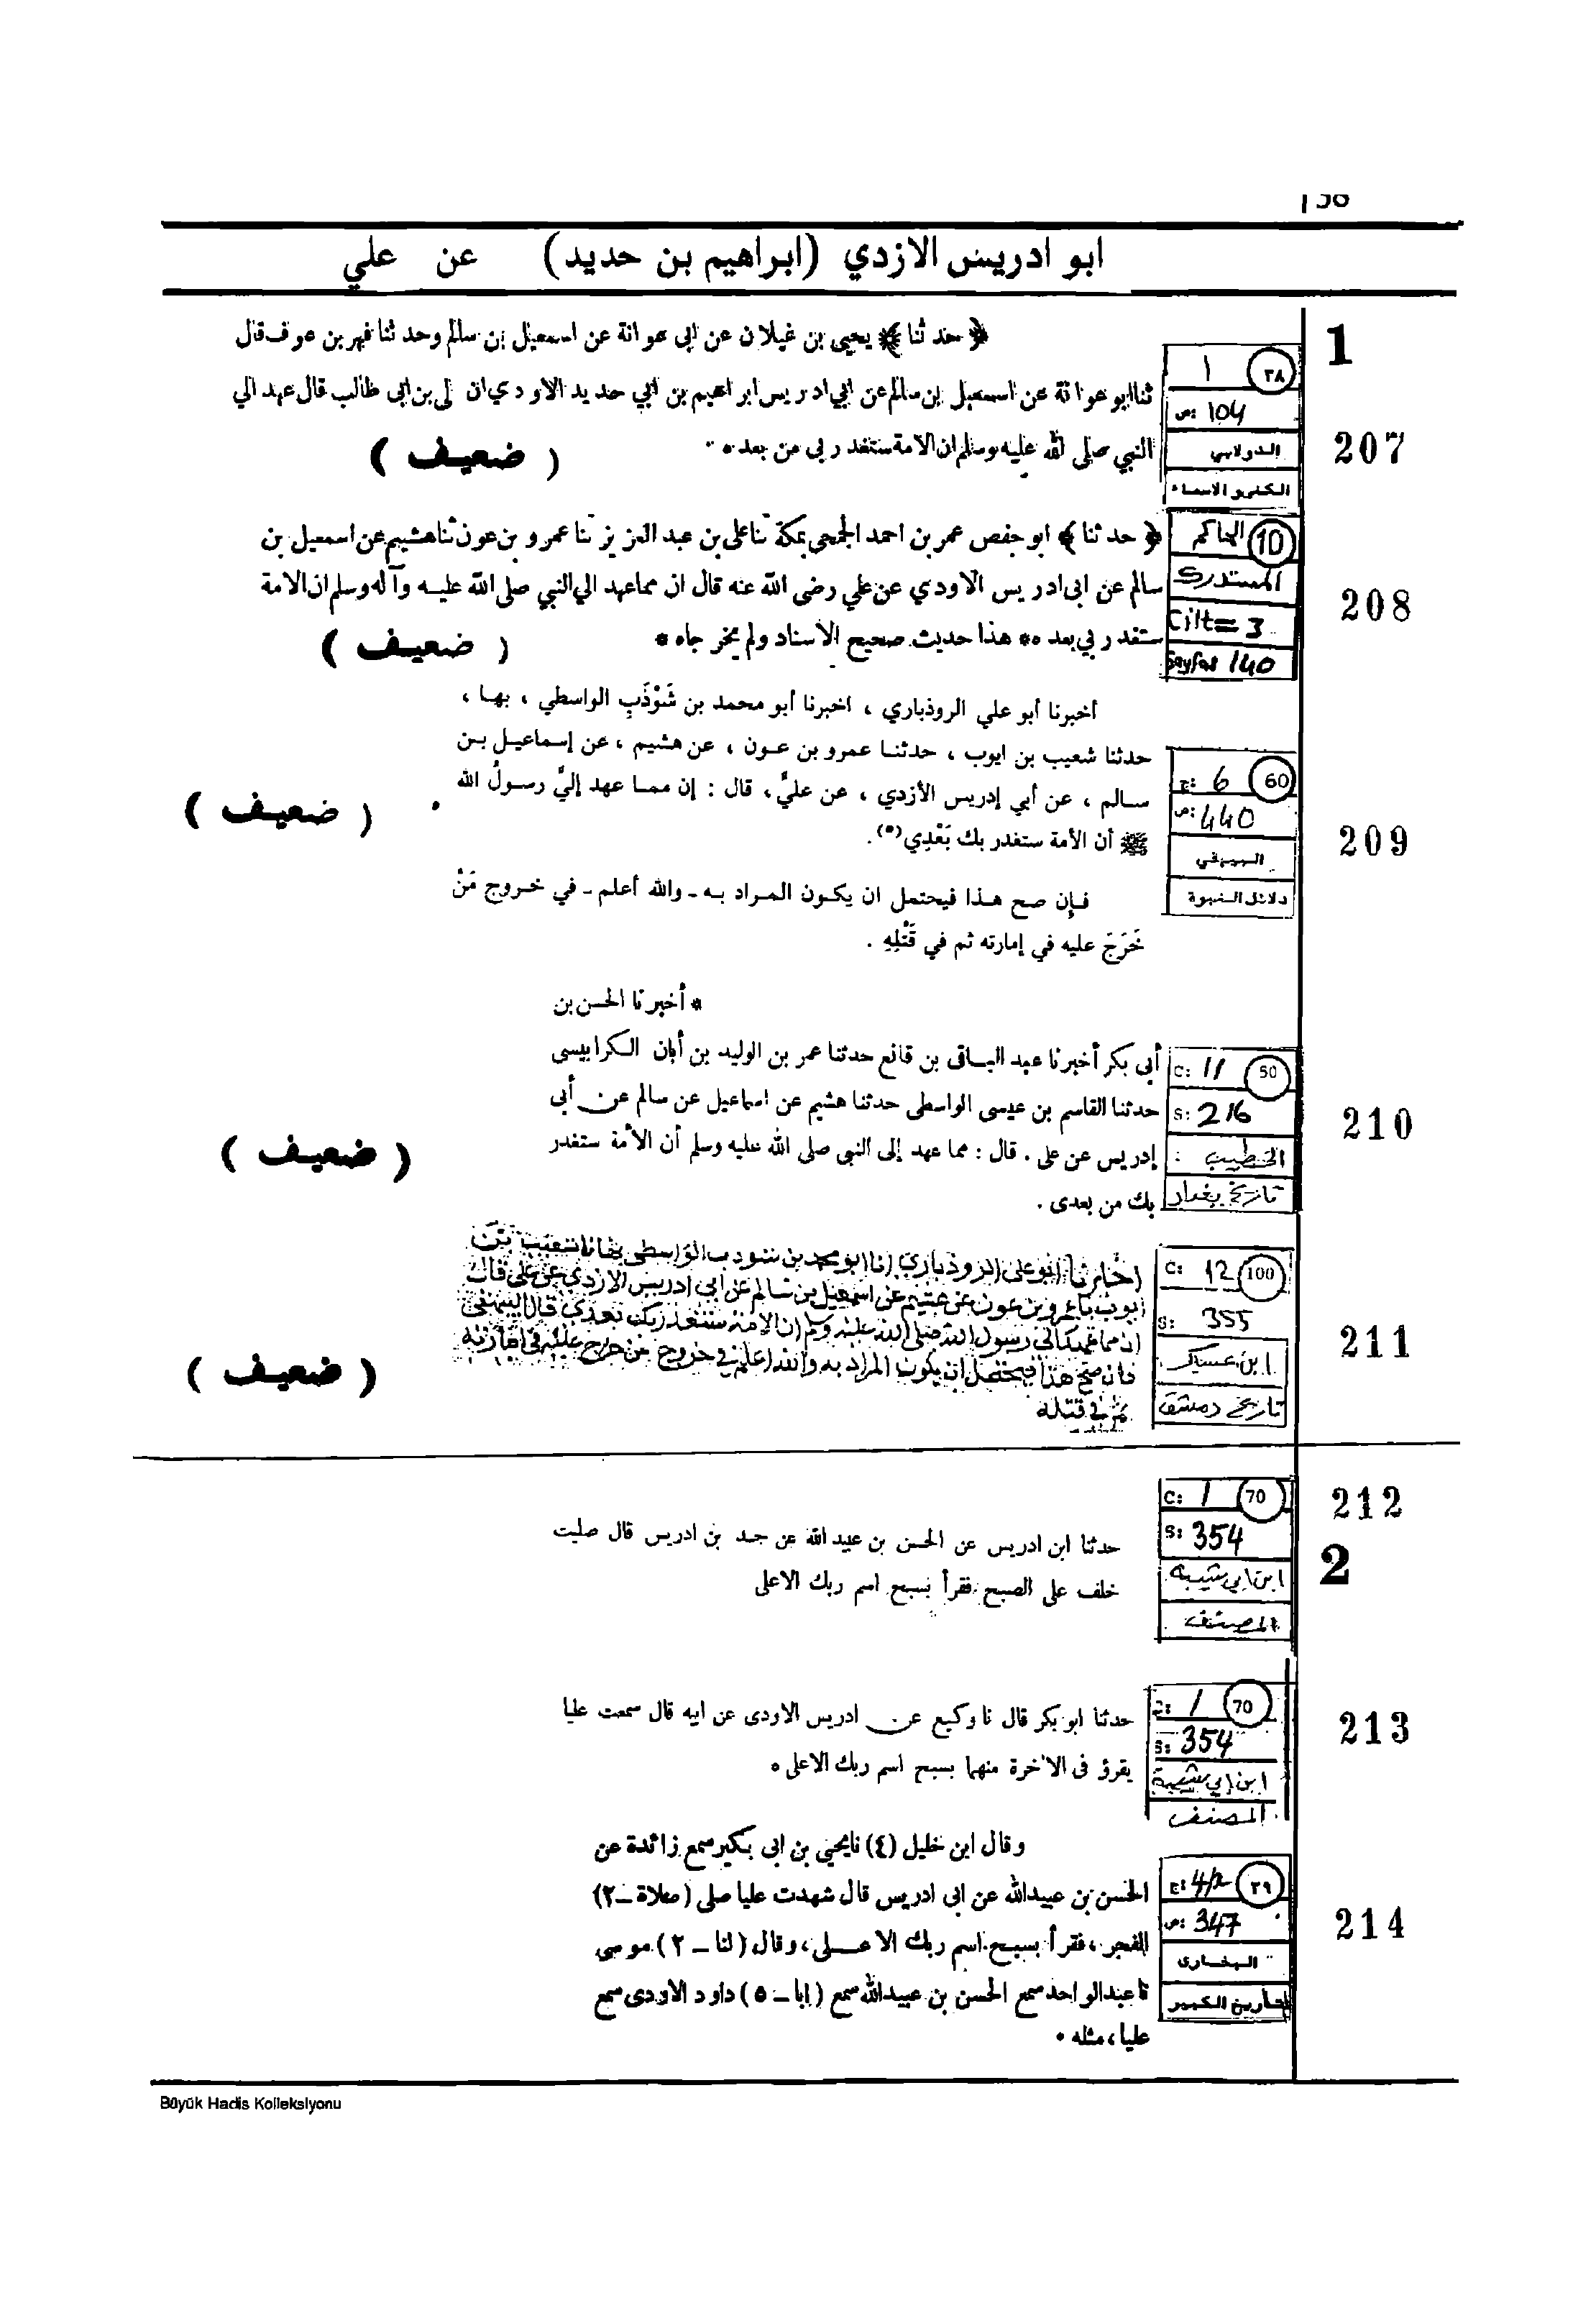 ابو ادريس الازدي (ابراهيم بن حديد) عن علي
1
﴿ حدثنا ﴾ يحيى بن غيلان عن ابى عوانة عن اسمعيل بن سالم وحدثنا فهر بن عوف قال
ثنا ابو عوانة عن اسمعيل بن سالم عن ابي ادريس ابراهيم بن ابي حديد الاودي ان على بن ابى طالب قال عهد الي
النبي صلى الله عليه وسلم ان الامة ستغدر بي من بعده
( ضعيف )
٣٨ ١
ص: 104
الدولابي
الكنى و الاسماء
207
﴿ حدثنا ﴾ ابو حفص عمر بن احمد الجمحي بمكة ثنا على بن عبد العزيز ثنا عمرو بن عون ثنا هشيم عن اسمعيل بن
سالم عن ابى ادريس الاودي عن علي رضى الله عنه قال ان مما عهد الي النبي صلى الله عليه وآله وسلم ان الامة
ستغدر بي بعده * هذا حديث صحيح الاسناد ولم يخرجاه *
( ضعيف )
10 الحاكم
المستدرك
Cilt= 3
Sayfa 140
208
أخبرنا أبو علي الروذباري ، اخبرنا أبو محمد بن شَوْذَبِ الواسطي ، بها ،
حدثنا شعيب بن ايوب ، حدثنا عمرو بن عون ، عن هشيم ، عن إسماعيل بن
سالم ، عن أبي إدريس الأزدي ، عن عليٍّ ، قال : إن مما عهد إليَّ رسولُ الله
ﷺ أن الأمة ستغدر بك بَعْدِي(٥).
( ضعيف )
فإن صح هذا فيحتمل ان يكون المراد به - والله أعلم - في خروج مَنْ
خَرَجَ عليه في إمارته ثم في قَتْلِهِ .
60 ج: 6
ص: 440
البيهقي
دلائل النبوة
209
* أخبرنا الحسن بن
أبى بكر أخبرنا عبد الباقى بن قانع حدثنا عمر بن الوليد بن أبان الكرابيسى
حدثنا القاسم بن عيسى الواسطى حدثنا هشيم عن اسماعيل عن سالم عن أبي
إدريس عن على . قال : مما عهد إلى النبى صلى الله عليه وسلم أن الأمة ستغدر
بك من بعدى .
( ضعيف )
C: 11 50
S: 216
الخطيب
تاريخ بغداد
210
اخبرنا ابو على الروذباري انا ابو محمد بن شوذب الواسطى بها نا شعيب بن
ايوب نا عمرو بن عون عن هشيم عن اسمعيل بن سالم عن ابى ادريس الازدي عن على قال
ان مما عهد الى رسول الله صلى الله عليه وسلم ان الامة ستغدر بك بعدي قال البيهقى
فان صح هذا فيحتمل ان يكون المراد به والله اعلم في خروج من خرج عليه فى امارته
ثم فى قتله
( ضعيف )
C: 12 100
S: 355
ابن عساكر
تاريخ دمشق
211
حدثنا ابن ادريس عن الحسن بن عبيد الله عن جد بن ادريس قال صليت
خلف على الصبح فقرأ بسبح اسم ربك الاعلى
C: 1 70
S: 354
ابن ابي شيبة
المصنف
212
2
حدثنا ابو بكر قال نا وكيع عن ادريس الاودى عن ابيه قال سمعت عليا
يقرؤ فى الآخرة منهما بسبح اسم ربك الاعلى ٥
C: 1 70
S: 354
ابن ابي شيبة
المصنف
213
وقال ابن خليل (٤) نا يحيى بن ابى بكير سمع زائدة عن
الحسن بن عبيدالله عن ابى ادريس قال شهدت عليا صلى (صلاة - ٢)
الفجر ، فقرأ بسبح اسم ربك الاعلى ، وقال (لنا - ٢) موسى
نا عبدالواحد سمع الحسن بن عبيدالله سمع (ابا - ٥) داود الاودى سمع
عليا ، مثله .
ج: 4/2 ٣٩
ص: 347
البخارى
التاريخ الكبير
214
Büyük Hadis Kolleksiyonu